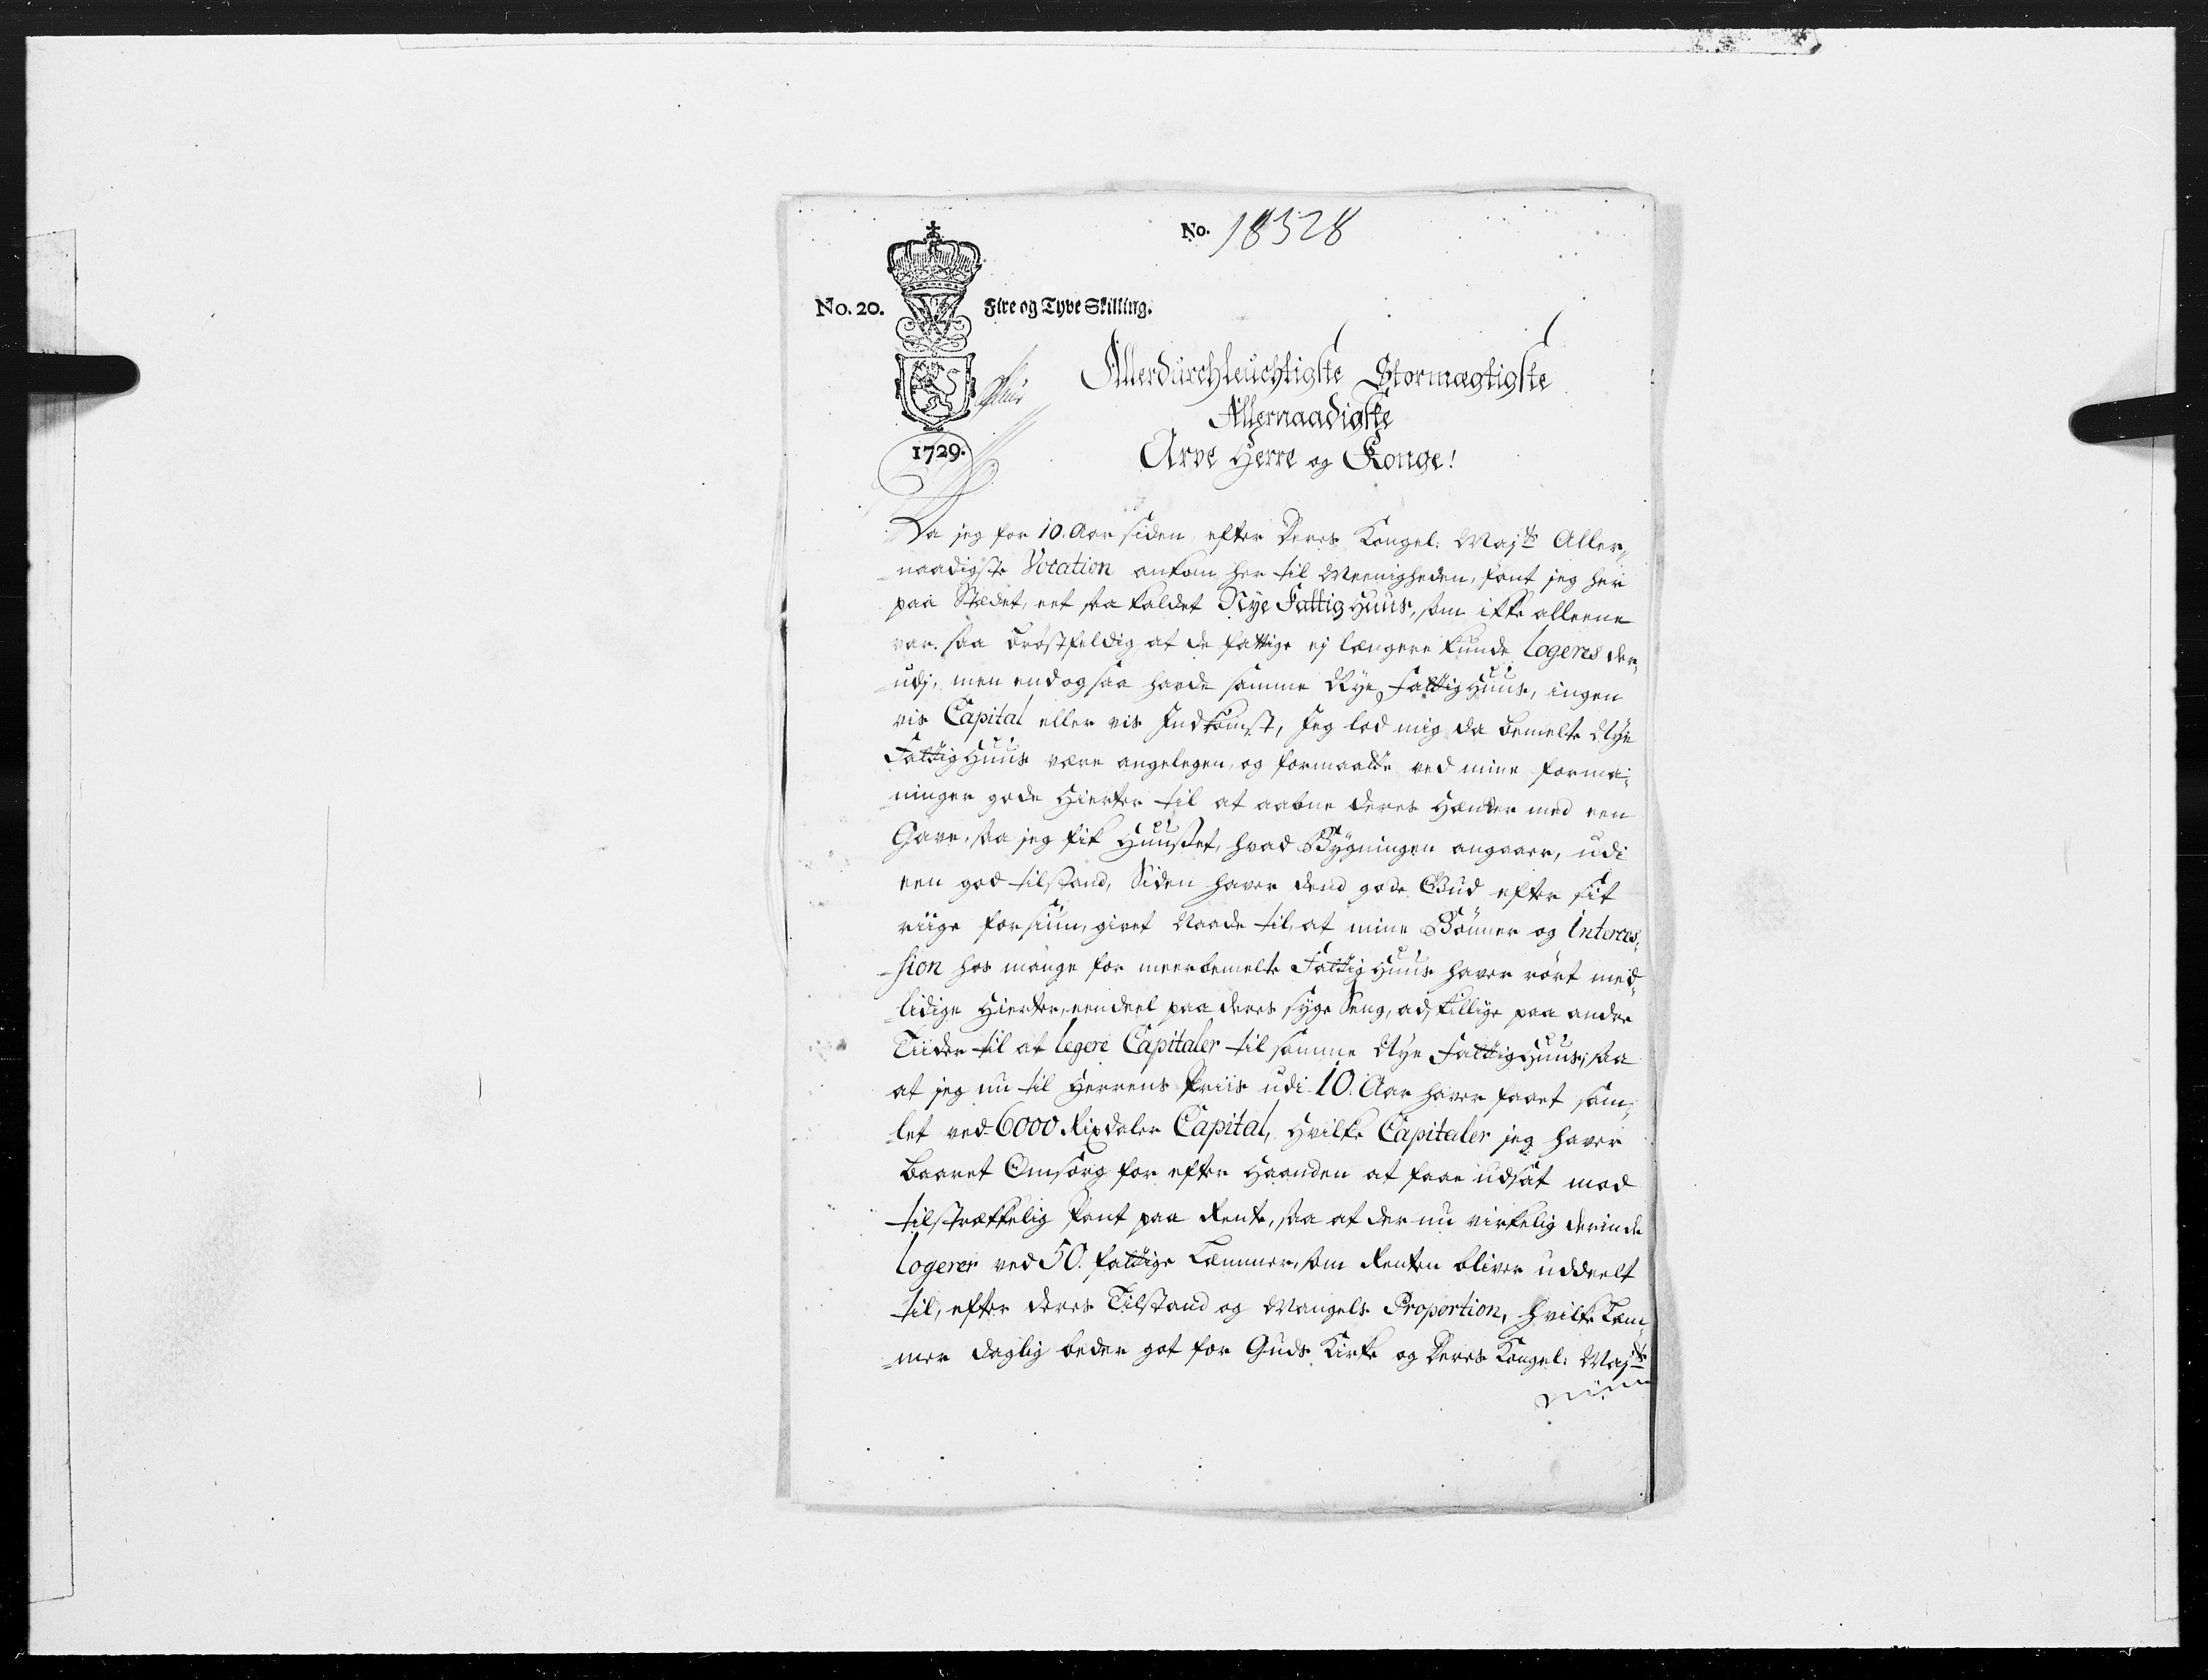 No. 18328
No. 20. Fire og Tyve Skilling.
1729.
Allerdurchleuchtigste Stormægtigste
Allernaadigste
Arve Herre og Konge!
Da jeg for 10. Aar siden, efter Deres Kongel: Majts Aller„
naadigste Vocation ankom her til Meenigheden, fant jeg her
paa Stædet, eet saa kaldet Nye Fattig Huus, som ikke alleene
var saa bröstfeldig at de fattige ej længere kunde logeres der„
udj, men endogsaa havde samme Nye Fattig Huus, ingen
vis Capital eller vis Indkomst, Jeg lod mig da bemelte Nye
Fattig Huus være angelegen, og formaaede ved mine forma„
ninger gode Hierter til at aabne deres Hænder med een
Gave, saa jeg fik Huuset, hvad Bygningen angaaer, udi
een god tilstand, Siden haver dend gode Gud efter sit
riige forsiun, givet Naade til, at mine Bönner og Interces„
sion hos mange for meerbemelte Fattig Huus haver rört med„
lidige Hierter, eendeel paa deres syge Seng, adskillige paa andre
Tiider til at legere Capitaler til samme Nye Fattig Huus, saa
at jeg nu til Herrens Priis udi 10. Aar haver faaet sam„
let ved 6000 Rixdaler Capital, Hvilke Capitaler jeg haver
baaret Omsorg for efter Haanden at faae udsat mod
tilstrækkelig Pant paa Rente, saa at der nu virkelig derinde
logerer ved 50. fattige Lemmer, som Renten bliver uddeelt
til, efter deres Tilstand og Mangels Proportion, hvilke Lem„
mer daglig beder got for Guds Kirke og Deres Kongel: Majts